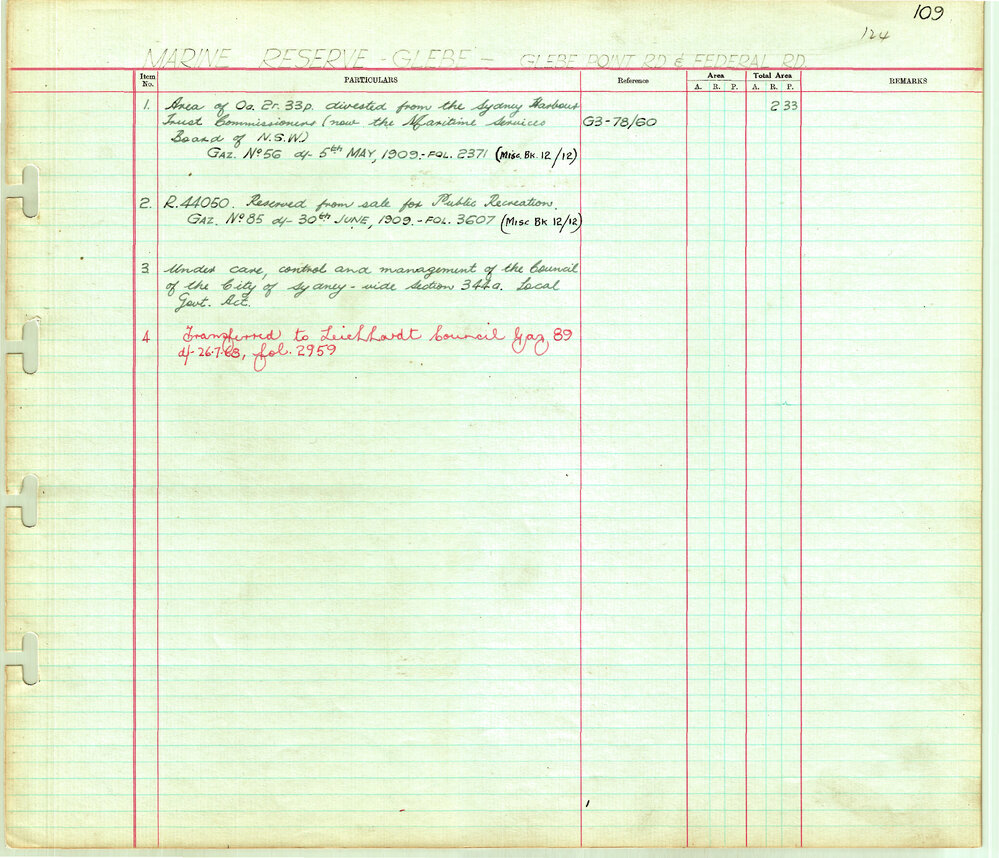 109
124
MARINE RESERVE - GLEBE - GLEBE POINT RD & FEDERAL RD
Item No. PARTICULARS Reference Area A. R. P. Total Area A. R. P. REMARKS
1. Area of 0a. 2r. 33p. divested from the Sydney Harbour 2 33
Trust Commissioners (now the Maritime Services G3-78/60
Board of N.S.W.)
GAZ. Nº 56 df- 5th MAY, 1909.- FOL. 2371 (Misc. Bk. 12/12)
2. R.44050. Reserved from sale for Public Recreation.
GAZ. Nº 85 df- 30th JUNE, 1909.- FOL. 3607 (Misc Bk 12/12)
3 Under care, control and management of the Council
of the City of Sydney - vide Section 344a. Local
Govt. Act.
4 Transferred to Leichhardt Council Gaz 89
df- 26.7.68, fol. 2959